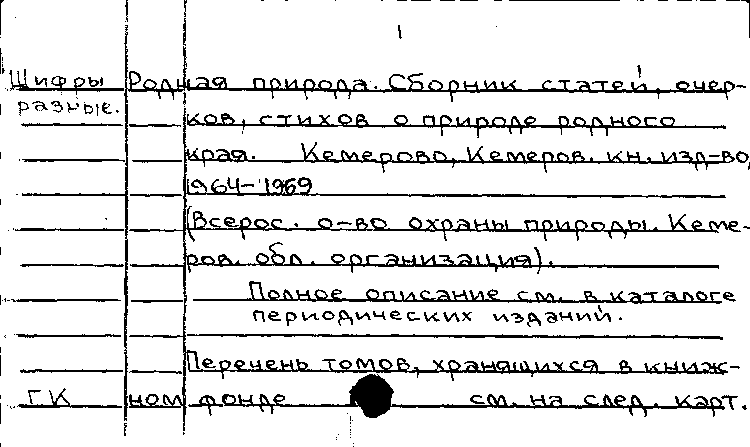 1
Шифры Родная природа. Сборник статей, очер-
разные.
ков, стихов о природе родного
края. Кемерово, Кемеров. кн. изд-во,
1964-1969
(Всерос. о-во охраны природы. Кеме-
ров. обл. организация).
Полное описание см. в каталоге
периодических изданий.
Перечень томов, хранящихся в книж-
ГК ном фонде см. на след. карт.